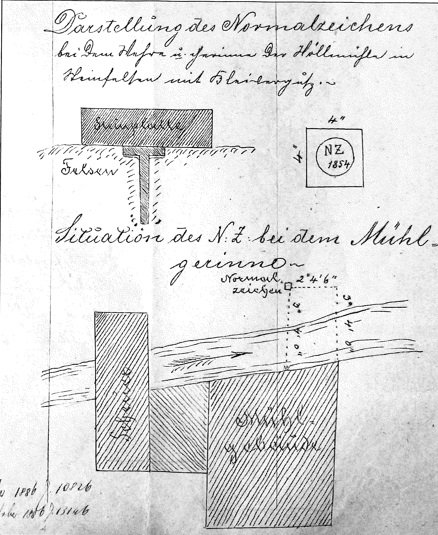 Darstellung des Normalzeichens
bei dem Wehre u. Gerinne der Höllmühle in
Steinfelsen mit Bleivergutz.
Steinplatte
Felsen
4"
4"
NZ
1854
Situation des N: Z: bei dem Mühl-
gerinne
Normal
zeichen
2° 4' 6"
Scheune
Mühl-
gebäude
1886
10826
1886